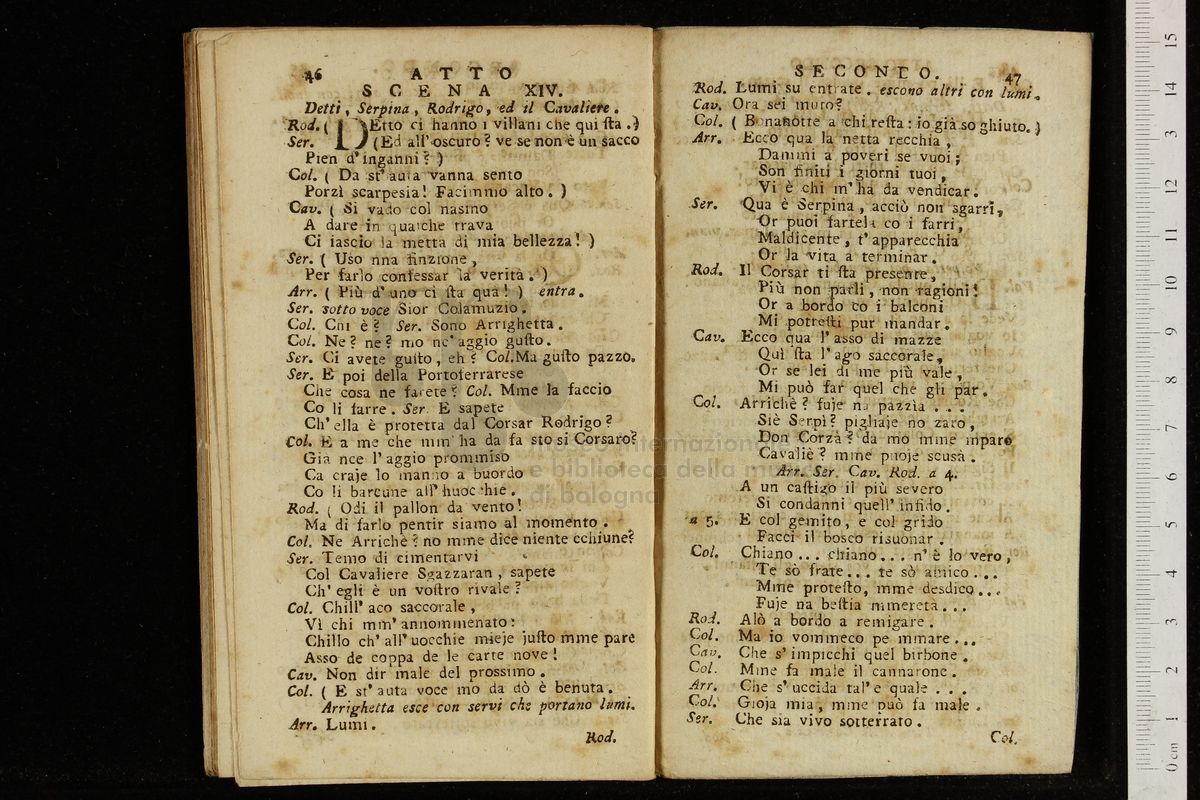 46 ATTO
SCENA XIV.
Detti, Serpina, Rodrigo, ed il Cavaliere.
Rod. ( DEtto ci hanno i villani che qui sta.)
Ser. (Ed all' oscuro? ve se non è un sacco
Pien d'inganni? )
Col. ( Da st' auta vanna sento
Porzì scarpesia! Facimmo alto. )
Cav. ( Si vado col nasino
A dare in qualche trava
Ci lascio la metta di mia bellezza! )
Ser. ( Uso nna finzione,
Per farlo confessar la verità. )
Arr. ( Più d'uno ci sta qua! ) entra.
Ser. sotto voce Sior Colamuzio.
Col. Chi è? Ser. Sono Arrighetta.
Col. Ne? ne? mo nc' aggio gusto.
Ser. Ci avete gusto, eh? Col. Ma gusto pazzo.
Ser. E poi della Portoferrarese
Che cosa ne farete? Col. Mme la faccio
Co li farre. Ser. E sapete
Ch' ella è protetta dal Corsar Rodrigo?
Col. E a me che mm' ha da fa sto si Corsaro?
Gia nce l' aggio prommiso
Ca craje lo manno a buordo
Co li barcune all' huocchie.
Rod. ( Odi il pallon da vento!
Ma di farlo pentir siamo al momento.
Col. Ne Arrichè? no mme dice niente cchiune?
Ser. Temo di cimentarvi
Col Cavaliere Sgazzaran, sapete
Ch' egli è un vostro rivale?
Col. Chill' aco saccorale,
Vi chi mm' annommenato:
Chillo ch' all' uocchie mieje justo mme pare
Asso de coppa de le carte nove!
Cav. Non dir male del prossimo.
Col. ( E st' auta voce mo da dò è benuta.
Arrighetta esce con servi che portano lumi.
Arr. Lumi.
Rod.
SECONDO. 47
Rod. Lumi su entrate. escono altri con lumi.
Cav. Ora sei muro?
Col. ( Bonanotte a chi resta: io già so ghiuto. )
Arr. Ecco qua la netta recchia,
Dammi a poveri se vuoi;
Son finiti i giorni tuoi,
Vi è chi m' ha da vendicar.
Ser. Qua è Serpina, acciò non sgarri,
Or puoi fartela co i farri,
Maldicente, t' apparecchia
Or la vita a terminar.
Rod. Il Corsar ti sta presente,
Più non parli, non ragioni!
Or a bordo co i balconi
Mi potresti pur mandar.
Cav. Ecco qua l' asso di mazze
Quì sta l' ago saccorale,
Or se lei di me più vale,
Mi può far quel che gli par.
Col. Arrichè? fuje na pazzìa ...
Siè Serpì? pigliaje no zaro,
Don Corzà? da mo mme mparo
Cavaliè? mme puoje scusà.
Arr. Ser. Cav. Rod. a 4.
A un castigo il più severo
Si condanni quell' infido.
a 5. E col gemito, e col grido
Facci il bosco risuonar.
Col. Chiano ... chiano ... n' è lo vero,
Te sò frate ... te sò amico ...
Mme protesto, mme desdico ...
Fuje na bestia mmereta ...
Rod. Alò a bordo a remigare.
Col. Ma io vommeco pe mmare ...
Cav. Che s' impicchi quel birbone.
Col. Mme fa male il cannarone.
Arr. Che s' uccida tal' e quale ...
Col. Gioja mia, mme può fa male.
Ser. Che sia vivo sotterrato.
Col.
museo internazionale
e biblioteca della musica
di bologna
0 cm 1 2 3 4 5 6 7 8 9 10 11 12 13 14 15